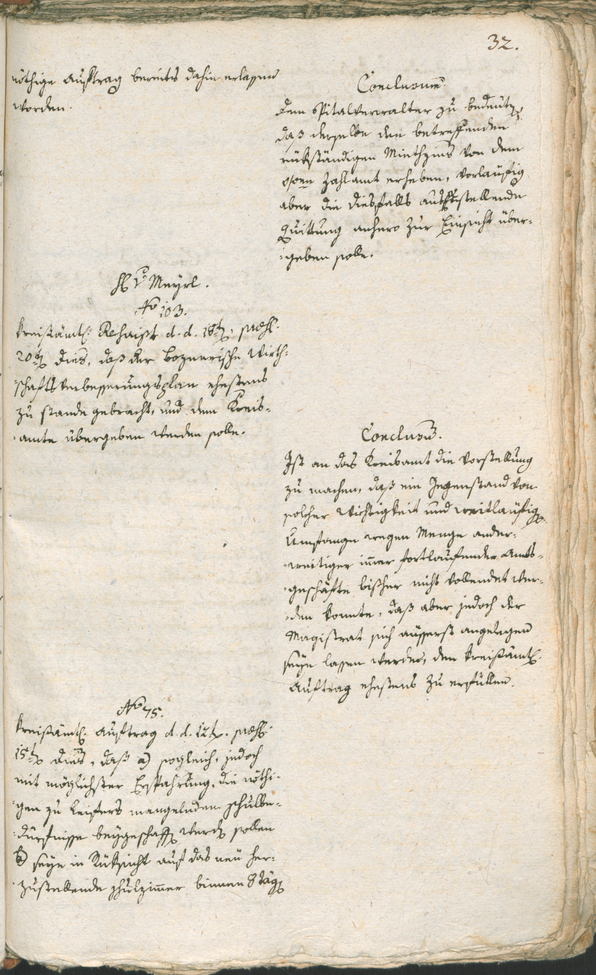 32.
nöthige Auftrag bereits dahin erlassen
worden.
Conclusum
dem Spitalverwalter zu bedeuten,
daß derselbe den betreffenden
rükständigen Miethzins von dem
Zahlamt erheben, vorläufig
aber die diesfalls auszustellende
Quittung anhero zur Einsicht über-
geben solle.
H. v. Meyrl.
No 103.
Kreisämtl. d. d. 18t, praes.
20t dies, daß der Boznerische Wirth-
schaftsverbesserungsplan ehestens
zu stande gebracht, und dem Kreis-
amte übergeben werden solle.
Conclusum.
Ist an das Kreisamt die Vorstellung
zu machen, daß ein Gegenstand von
solcher Wichtigkeit und weitläufigen
Umfange wegen Menge ander-
weitiger immer fortlaufender Amts-
geschäfte bisher nicht vollendet wer-
den konnte, daß aber jedoch der
Magistrat sich äusserst angelegen
seyn lassen werde, den kreisämtl.
Auftrag ehestens zu erfüllen.
No 75.
Kreisämtl. Auftrag d. d. 12t. praes.
15t dies, daß a) sogleich, jedoch
mit möglichster Ersparung, die nöthi-
gen zu Leifers mangelnden Schulbe-
dürfnisse beygeschafft werden sollen
b) seye in Rüksicht auf das neu her-
zustellende Schulzimmer binnen 8 Tägen